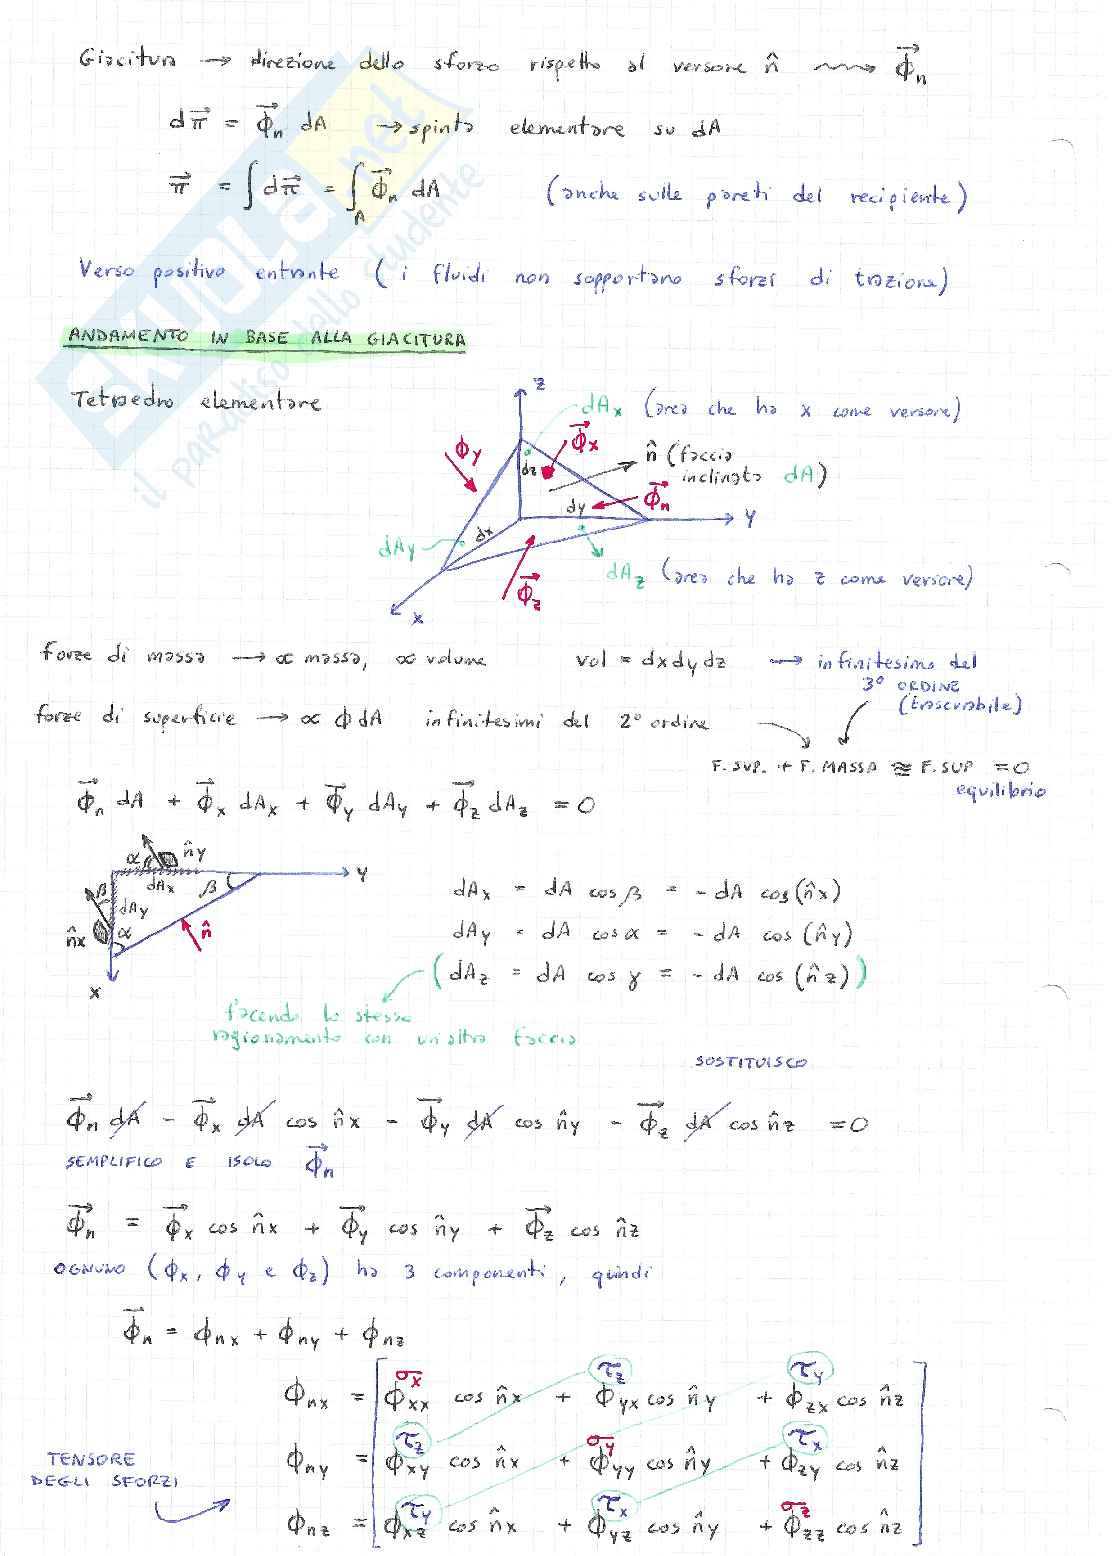 Giacitura → direzione dello sforzo rispetto al versore n̂ ⟿ Φ⃗n
dπ⃗ = Φ⃗n dA → spinta elementare su dA
π⃗ = ∫ dπ⃗ = ∫A Φ⃗n dA (anche sulle pareti del recipiente)
Verso positivo entrante (i fluidi non sopportano sforzi di trazione)
ANDAMENTO IN BASE ALLA GIACITURA
Tetraedro elementare
z
dAx (area che ha x come versore)
ϕy
Φ⃗x
n̂ (faccia inclinata dA)
dz
dy
Φ⃗n
y
dx
dAy
dAz (area che ha z come versore)
Φ⃗z
x
forze di massa → ∝ massa, ∝ volume vol = dxdydz → infinitesimo del
3° ORDINE
(trascurabile)
forze di superficie → ∝ ϕ dA infinitesimi del 2° ordine
F. SUP. + F. MASSA ≅ F. SUP = 0
equilibrio
Φ⃗n dA + Φ⃗x dAx + Φ⃗y dAy + Φ⃗z dAz = 0
α n̂y
y
dAx β
β
dAy
n̂x α n̂
x
dAx = dA cos β = - dA cos(n̂x)
dAy = dA cos α = - dA cos (n̂y)
(dAz = dA cos γ = - dA cos (n̂z))
facendo lo stesso
ragionamento con un'altra faccia
SOSTITUISCO
Φ⃗n dA - Φ⃗x dA cos n̂x - Φ⃗y dA cos n̂y - Φ⃗z dA cos n̂z = 0
SEMPLIFICO E ISOLO Φ⃗n
Φ⃗n = Φ⃗x cos n̂x + Φ⃗y cos n̂y + Φ⃗z cos n̂z
OGNUNO (ϕx, ϕy e ϕz) ha 3 componenti, quindi
Φ⃗n = ϕnx + ϕny + ϕnz
σx τz τy
ϕnx = [ ϕxx cos n̂x + ϕyx cos n̂y + ϕzx cos n̂z ]
τz σy τx
ϕny = [ ϕxy cos n̂x + ϕyy cos n̂y + ϕzy cos n̂z ]
τy τx σz
ϕnz = [ ϕxz cos n̂x + ϕyz cos n̂y + ϕzz cos n̂z ]
TENSORE
DEGLI SFORZI
SKUOLA.net
il paradiso dello studente